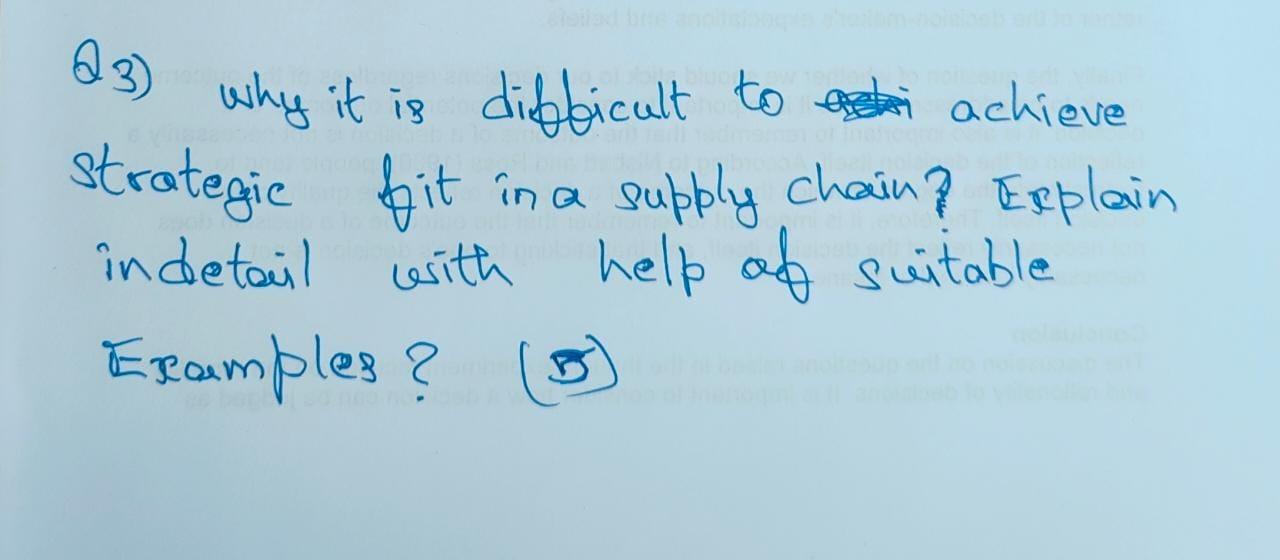 Q 3) why it is difficult to achieve
strategic fit in a supply chain? Explain
in detail with help of suitable
Examples? (5)